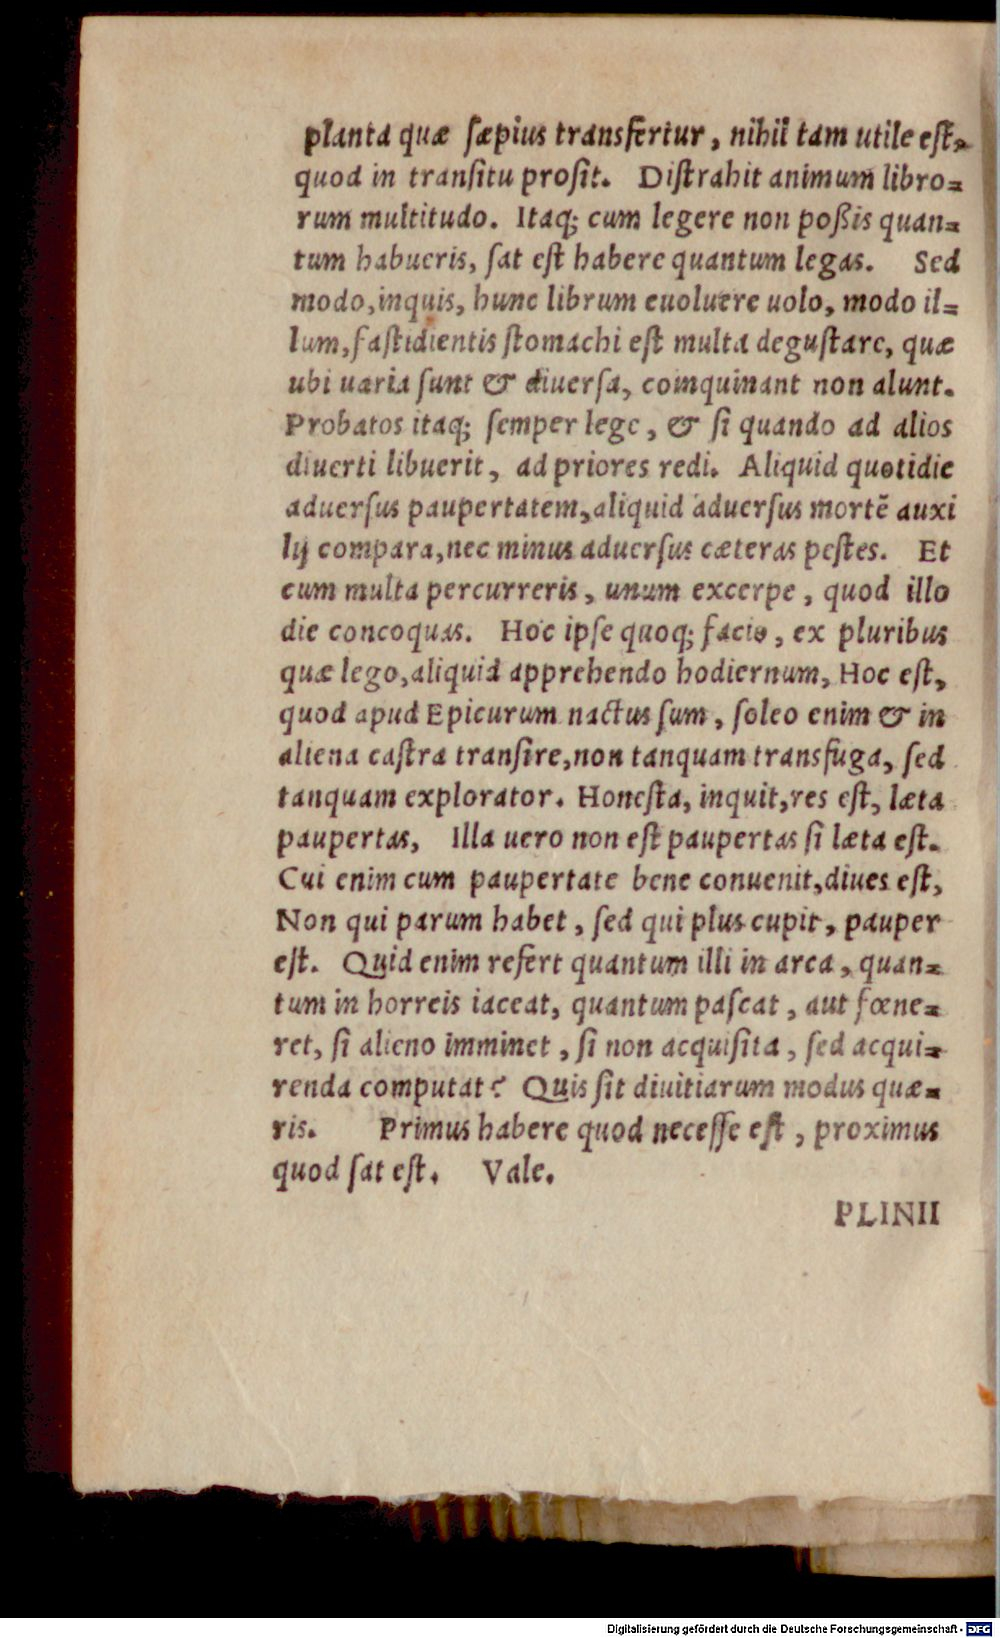 planta quæ ſæpius transfertur, nihil tam utile eſt,
quod in tranſitu proſit. Diſtrahit animum libro=
rum multitudo. Itaq; cum legere non poßis quan=
tum habueris, ſat eſt habere quantum legas. Sed
modo, inquis, hunc librum euoluere uolo, modo il=
lum, faſtidientis ſtomachi eſt multa deguſtare, quæ
ubi uaria ſunt & diuerſa, coinquinant non alunt.
Probatos itaq; ſemper lege, & ſi quando ad alios
diuerti libuerit, ad priores redi. Aliquid quotidie
aduerſus paupertatem, aliquid aduerſus mortē auxi
lij compara, nec minus aduerſus cæteras peſtes. Et
cum multa percurreris, unum excerpe, quod illo
die concoquas. Hoc ipſe quoq; facio, ex pluribus
quæ lego, aliquid apprehendo hodiernum, Hoc eſt,
quod apud Epicurum nactus ſum, ſoleo enim & in
aliena caſtra tranſire, non tanquam transfuga, ſed
tanquam explorator. Honeſta, inquit, res eſt, læta
paupertas, Illa uero non eſt paupertas ſi læta eſt.
Cui enim cum paupertate bene conuenit, diues eſt,
Non qui parum habet, ſed qui plus cupit, pauper
eſt. Quid enim refert quantum illi in arca, quan=
tum in horreis iaceat, quantum paſcat, aut fœne=
ret, ſi alieno imminet, ſi non acquiſita, ſed acqui=
renda computat? Quis ſit diuitiarum modus quæ=
ris. Primus habere quod neceſſe eſt, proximus
quod ſat eſt. Vale.
PLINII
Digitalisierung gefördert durch die Deutsche Forschungsgemeinschaft - DFG